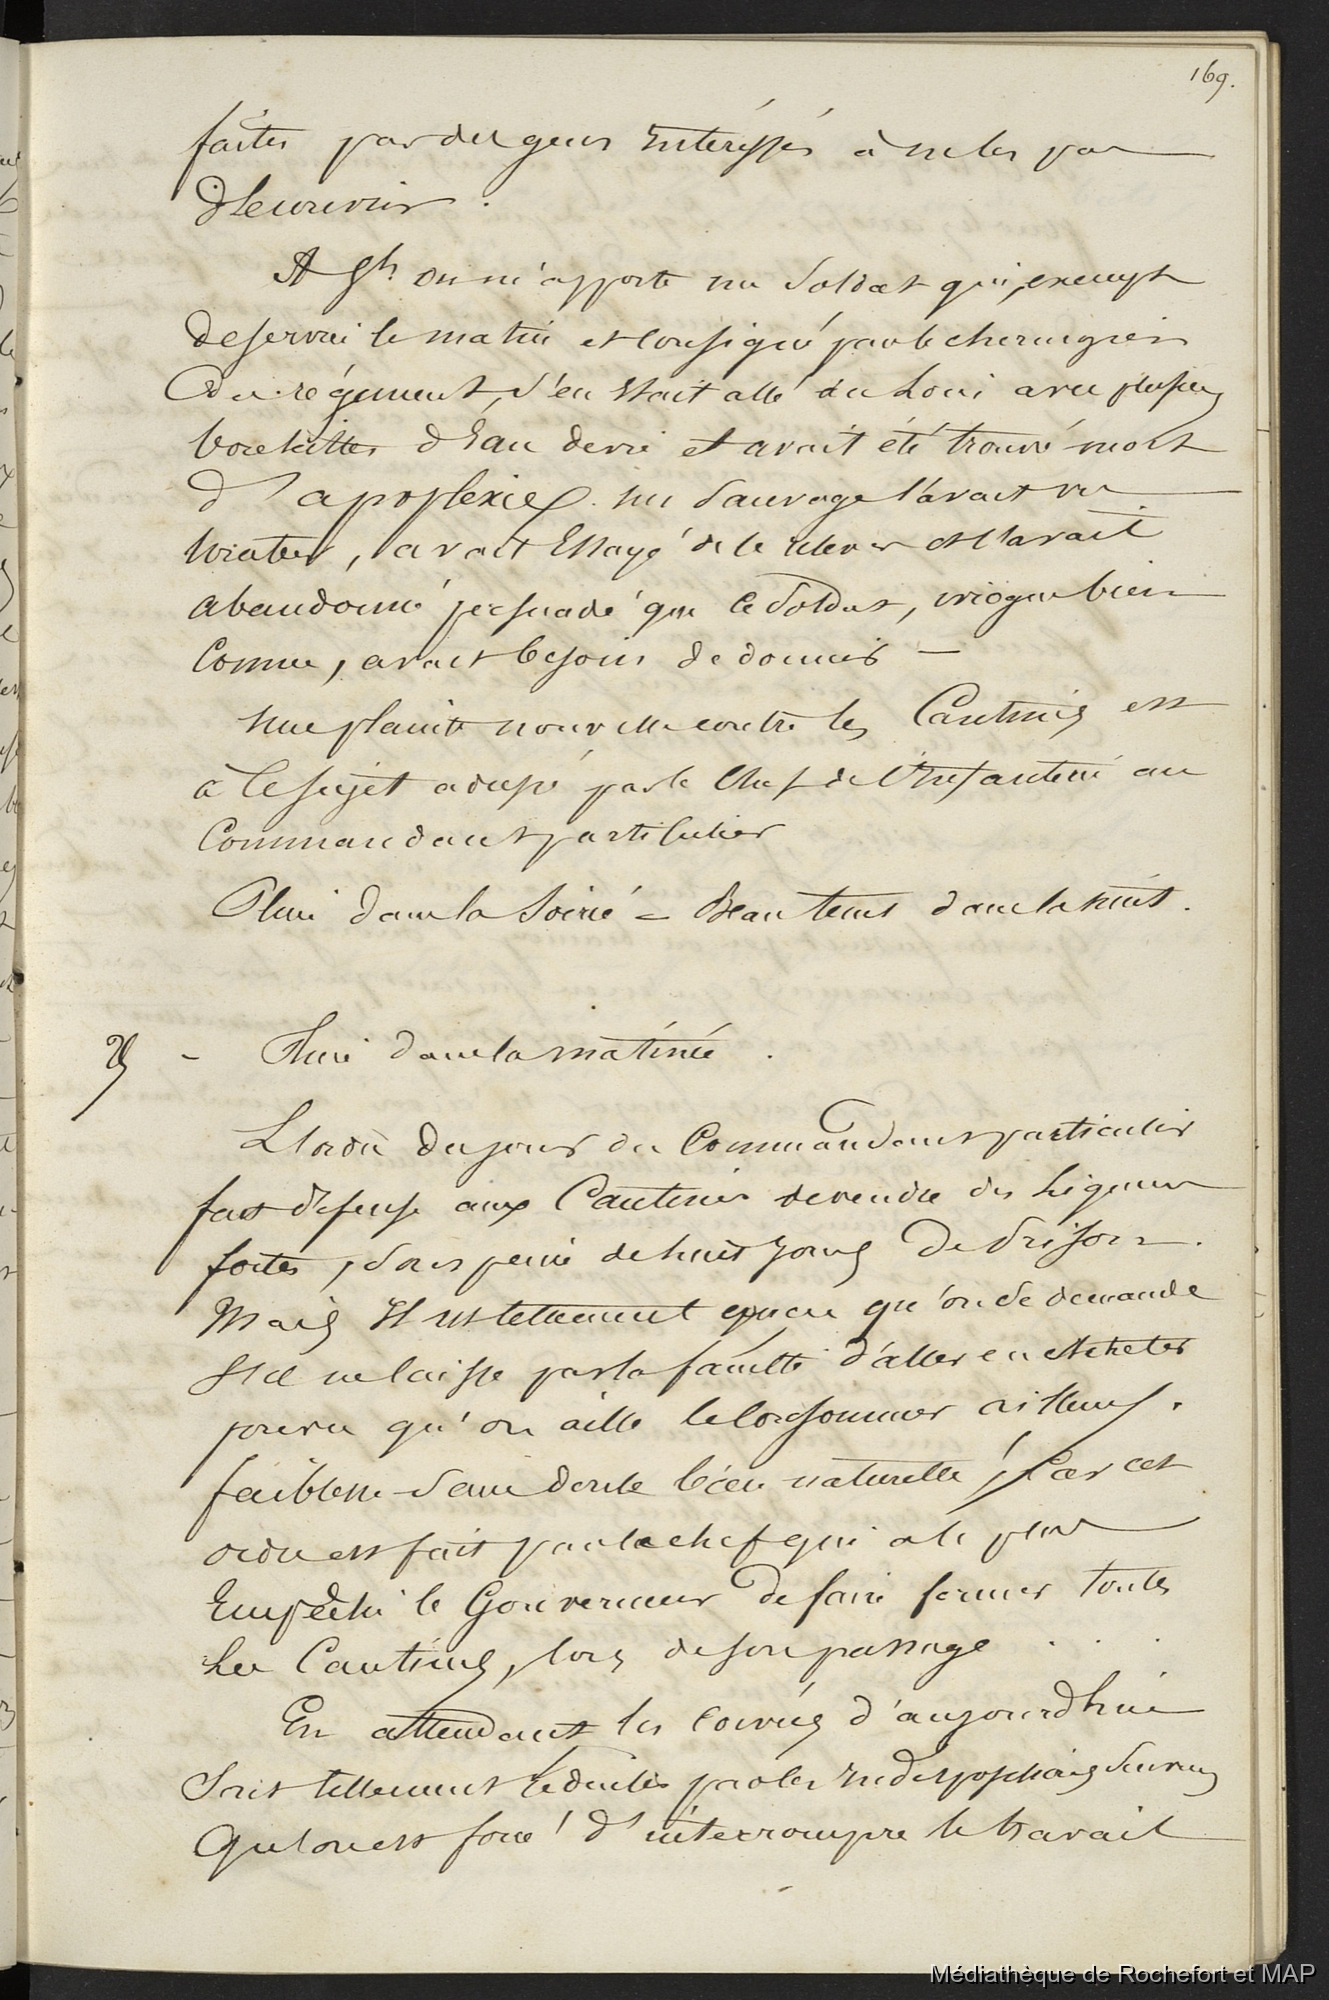 169.
faites par des gens intéressés à ne les pas
découvrir.
A 9h on m'apporte un soldat qui, exempt
de service le matin et consigné par le chirurgien
du régiment, s'en était allé du Loui avec plusieurs
bouteilles d'eau de vie et avait été trouvé mort
d'apoplexie. un sauvage l'avait vu
tomber, avait essayé de le relever et l'avait
abandonné persuadé que ce soldat, ivrogne bien
connu, avait besoin de dormir —
une plainte nouvelle contre les Cantines est
à ce sujet adressé par le chef de l'infanterie au
Commandant particulier
Pluie dans la soirée = Beau tems dans la nuit.
29 - Pluie dans la matinée.
L'ordre du jour du Commandant particulier
fait défense aux Cantines de vendre des liqueurs
fortes, sous peine de huit jours de prison.
Mais il est tellement qu'on se demande
s'il ne laisse pas la faculté d'aller en acheter
pourvu qu'on aille le consommer ailleurs.
faiblesse sans doute bien naturelle, car cet
ordre est fait par le chef qui a le plus
Empêché le Gouverneur de faire fermer toutes
les Cantines, lors de son passage . . .
En attendant les corvées d'aujourd'hui
sont tellement réduites par les indispositions survenues
Qu'on est forcé d'interrompre le travail
Médiathèque de Rochefort et MAP